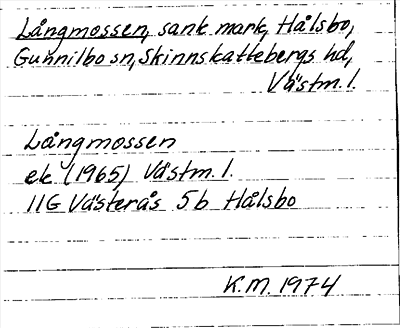 Långmossen, sank mark, Hålsbo,
Gunnilbo sn, Skinnskattebergs hd,
Västm. l.
Långmossen
ek (1965) Västm. l.
11G Västerås 5b Hålsbo
K.M. 1974